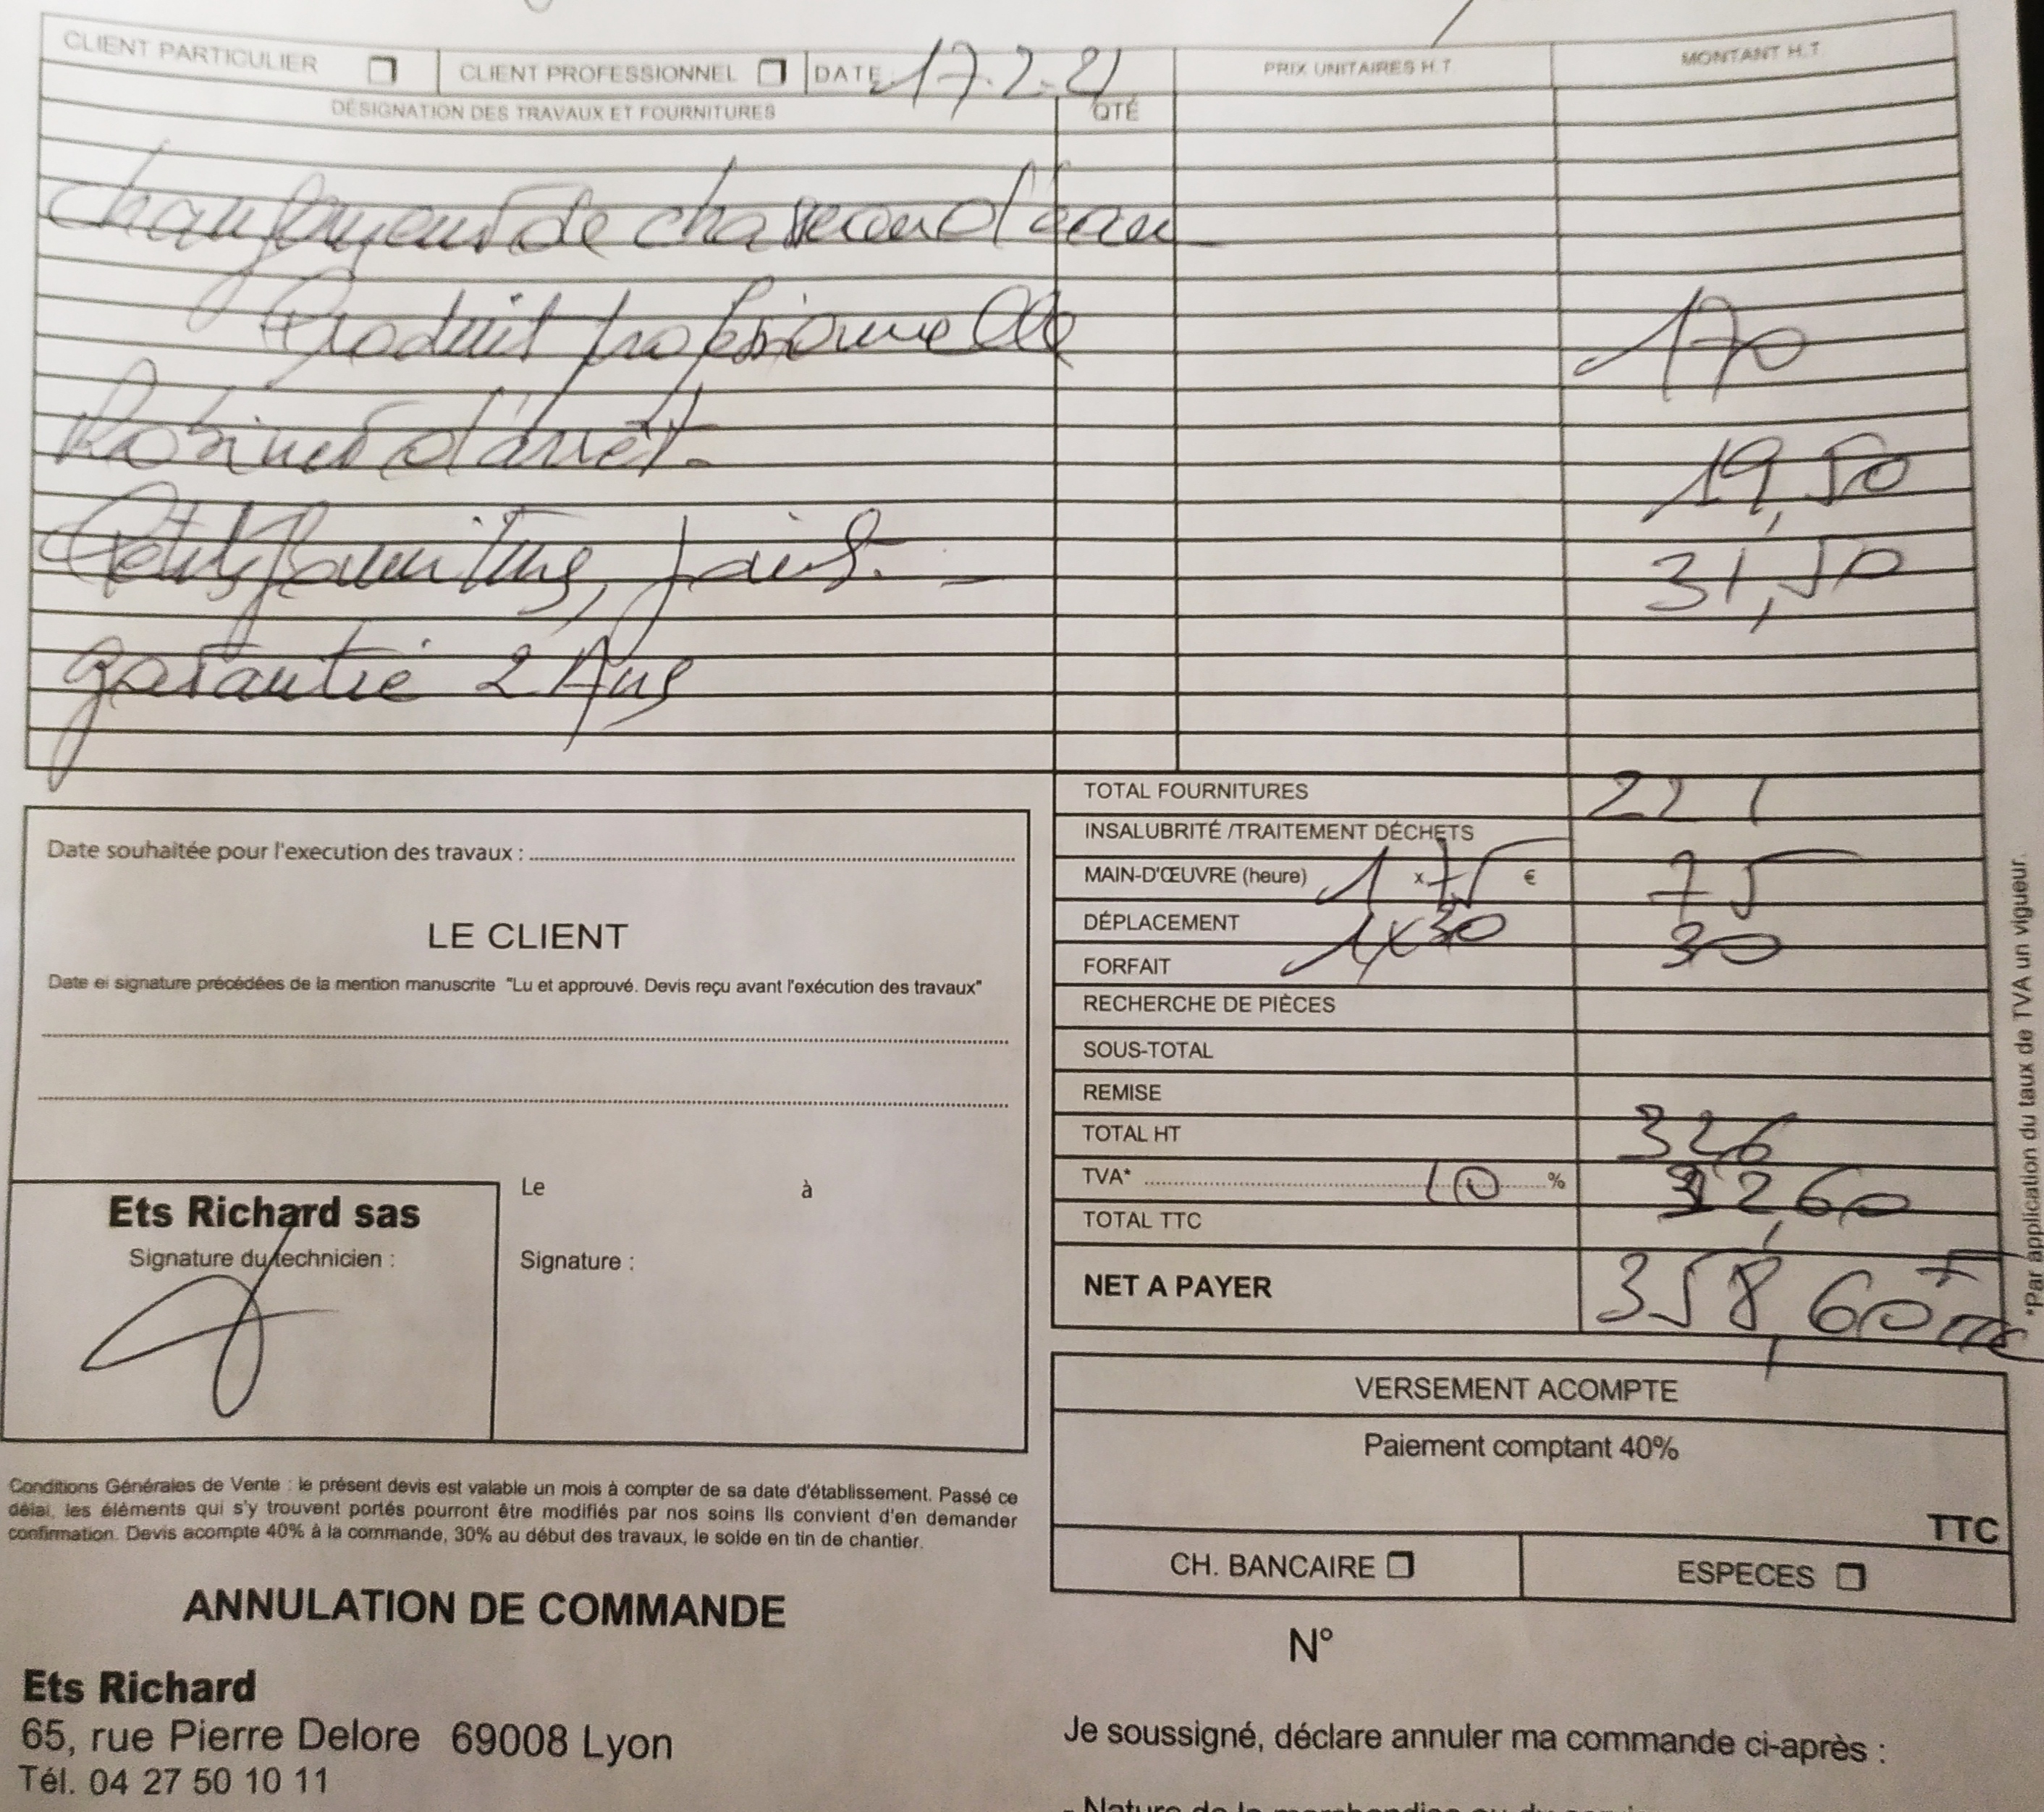 CLIENT PARTICULIER ❐ CLIENT PROFESSIONNEL ❐ DATE 17.2.21 PRIX UNITAIRES H.T MONTANT H.T
DÉSIGNATION DES TRAVAUX ET FOURNITURES QTÉ
de chasse d'eau
Produit professionnelle 170
Robinet d'arrêt. 19,50
Petites fournitures, joint. — 31,50
garantie 2 Ans
TOTAL FOURNITURES 221
INSALUBRITÉ /TRAITEMENT DÉCHETS
MAIN-D'ŒUVRE (heure) 1 x 75 € 75
DÉPLACEMENT 1x30 30
FORFAIT
RECHERCHE DE PIÈCES
SOUS-TOTAL
REMISE
TOTAL HT 326
TVA* 10 % 32,60
TOTAL TTC
NET A PAYER 358,60 TTC
*Par application du taux de TVA un vigueur.
Date souhaitée pour l'execution des travaux :
LE CLIENT
Date ei signature précédées de la mention manuscrite "Lu et approuvé. Devis reçu avant l'exécution des travaux"
Ets Richard sas
Signature du technicien :
Le à
Signature :
VERSEMENT ACOMPTE
Paiement comptant 40%
TTC
CH. BANCAIRE ❐ ESPECES ❐
Conditions Générales de Vente : le présent devis est valable un mois à compter de sa date d'établissement. Passé ce
délai, les éléments qui s'y trouvent portés pourront être modifiés par nos soins Ils convient d'en demander
confirmation. Devis acompte 40% à la commande, 30% au début des travaux, le solde en tin de chantier.
ANNULATION DE COMMANDE
N°
Ets Richard
65, rue Pierre Delore 69008 Lyon
Tél. 04 27 50 10 11
Je soussigné, déclare annuler ma commande ci-après :
- Nature de la marchandise ou du